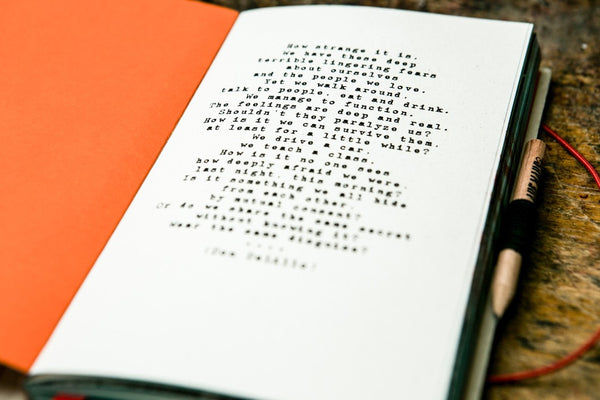 How strange it is.
We have these deep
terrible lingering fears
about ourselves
and the people we love.
Yet we walk around.
talk to people. eat and drink.
We manage to function.
The feelings are deep and real.
Shouldn't they paralyze us?
How is it we can survive them.
at least for a little while?
We drive a car.
we teach a class.
How is it no one sees
how deeply afraid we were.
last night. this morning?
Is it something we all hide
from each other.
by mutual consent?
Or do we share the same secret
without knowing it?
Wear the same disguise?
....
(Don Delillo)